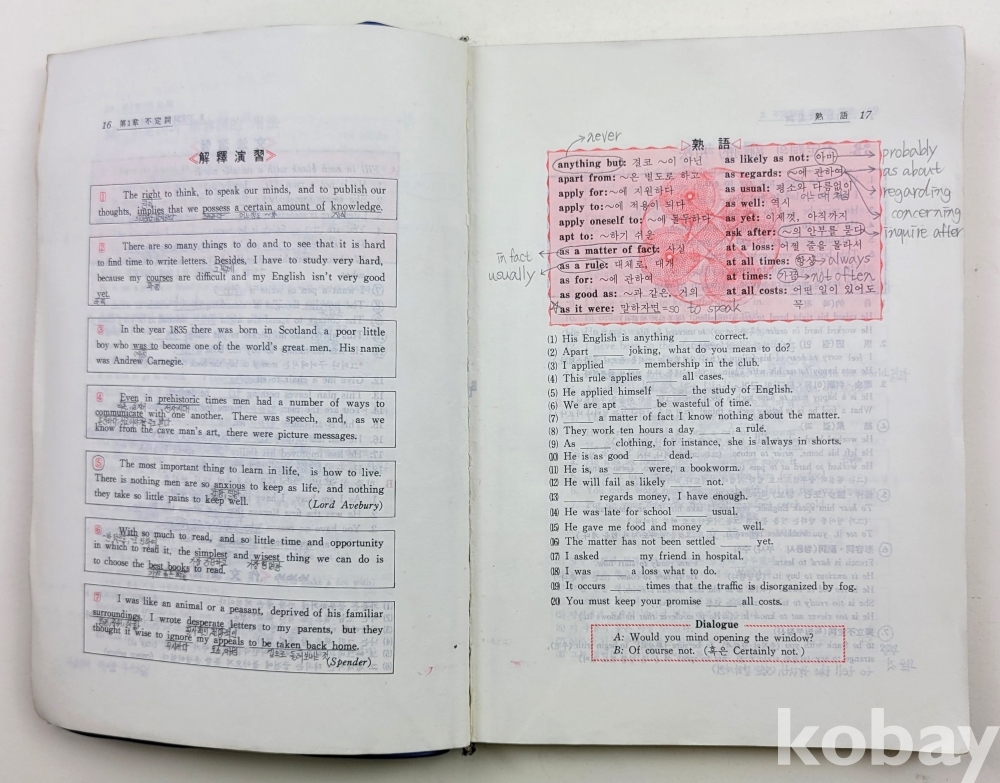 16 第1章 不定詞
解釋演習
① The right to think, to speak our minds, and to publish our
thoughts, implies that we possess a certain amount of knowledge.
② There are so many things to do and to see that it is hard
to find time to write letters. Besides, I have to study very hard,
because my courses are difficult and my English isn't very good
yet.
③ In the year 1835 there was born in Scotland a poor little
boy who was to become one of the world's great men. His name
was Andrew Carnegie.
④ Even in prehistoric times men had a number of ways to
communicate with one another. There was speech, and, as we
know from the cave man's art, there were picture messages.
⑤ The most important thing to learn in life, is how to live.
There is nothing men are so anxious to keep as life, and nothing
they take so little pains to keep well. (Lord Avebury)
⑥ With so much to read, and so little time and opportunity
in which to read it, the simplest and wisest thing we can do is
to choose the best books to read.
⑦ I was like an animal or a peasant, deprived of his familiar
surroundings. I wrote desperate letters to my parents, but they
thought it wise to ignore my appeals to be taken back home.
(Spender)
熟 語 17
never
熟 語
anything but: 결코 ~이 아닌
apart from: ~은 별도로 하고
apply for: ~에 지원하다
apply to: ~에 적용이 되다
apply oneself to: ~에 몰두하다
apt to: ~하기 쉬운
as a matter of fact: 사실
as a rule: 대체로, 대개
as for: ~에 관하여
as good as: ~과 같은, 거의
as it were: 말하자면 =so to speak
in fact
usually
as likely as not: 아마
as regards: ~에 관하여
as usual: 평소와 다름없이
as well: 역시
as yet: 이제껏, 아직까지
ask after: ~의 안부를 묻다
at a loss: 어쩔 줄을 몰라서
at all times: 항상 always
at times: 가끔 not often
at all costs: 어떤 일이 있어도
꼭
probably
as about
regarding
concerning
inquire after
(1) His English is anything ____ correct.
(2) Apart ____ joking, what do you mean to do?
(3) I applied ____ membership in the club.
(4) This rule applies ____ all cases.
(5) He applied himself ____ the study of English.
(6) We are apt ____ be wasteful of time.
(7) ____ a matter of fact I know nothing about the matter.
(8) They work ten hours a day ____ a rule.
(9) As ____ clothing, for instance, she is always in shorts.
(10) He is as good ____ dead.
(11) He is, as ____ were, a bookworm.
(12) He will fail as likely ____ not.
(13) ____ regards money, I have enough.
(14) He was late for school ____ usual.
(15) He gave me food and money ____ well.
(16) The matter has not been settled ____ yet.
(17) I asked ____ my friend in hospital.
(18) I was ____ a loss what to do.
(19) It occurs ____ times that the traffic is disorganized by fog.
(20) You must keep your promise ____ all costs.
Dialogue
A: Would you mind opening the window?
B: Of course not. (혹은 Certainly not.)
kobay